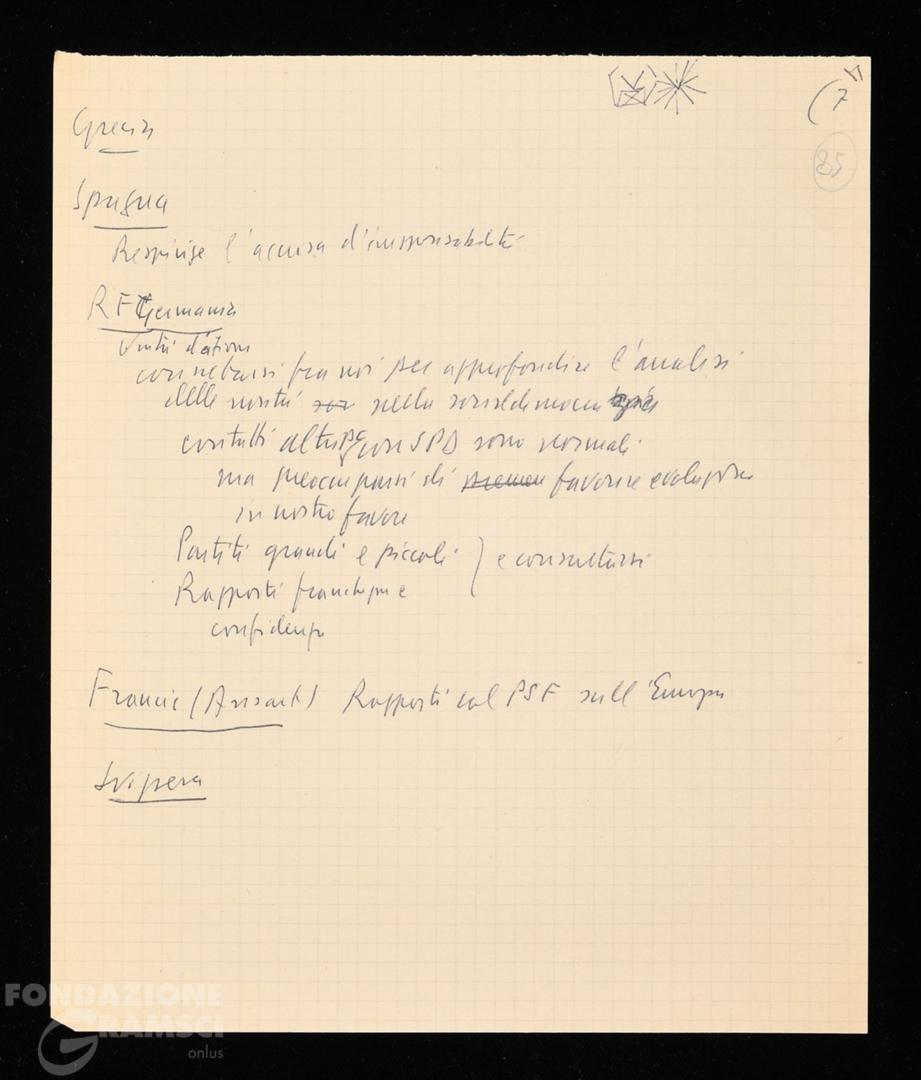 (7
85
Grecia
Spagna
Respinge l'accusa d'irresponsabilità
RF Germania
Unità d'azione
consultarsi fra noi per approfondire l'analisi
delle novità nella socialdemocrazia
contatti altri PC con SPD sono normali
ma preoccuparsi di favorire evoluzione
in nostro favore
Partiti grandi e piccoli } e consultarsi
Rapporti franchezza e
confidenza
Francia (Ansart) Rapporti col PSF sull'Europa
Svizzera
FONDAZIONE
GRAMSCI
onlus